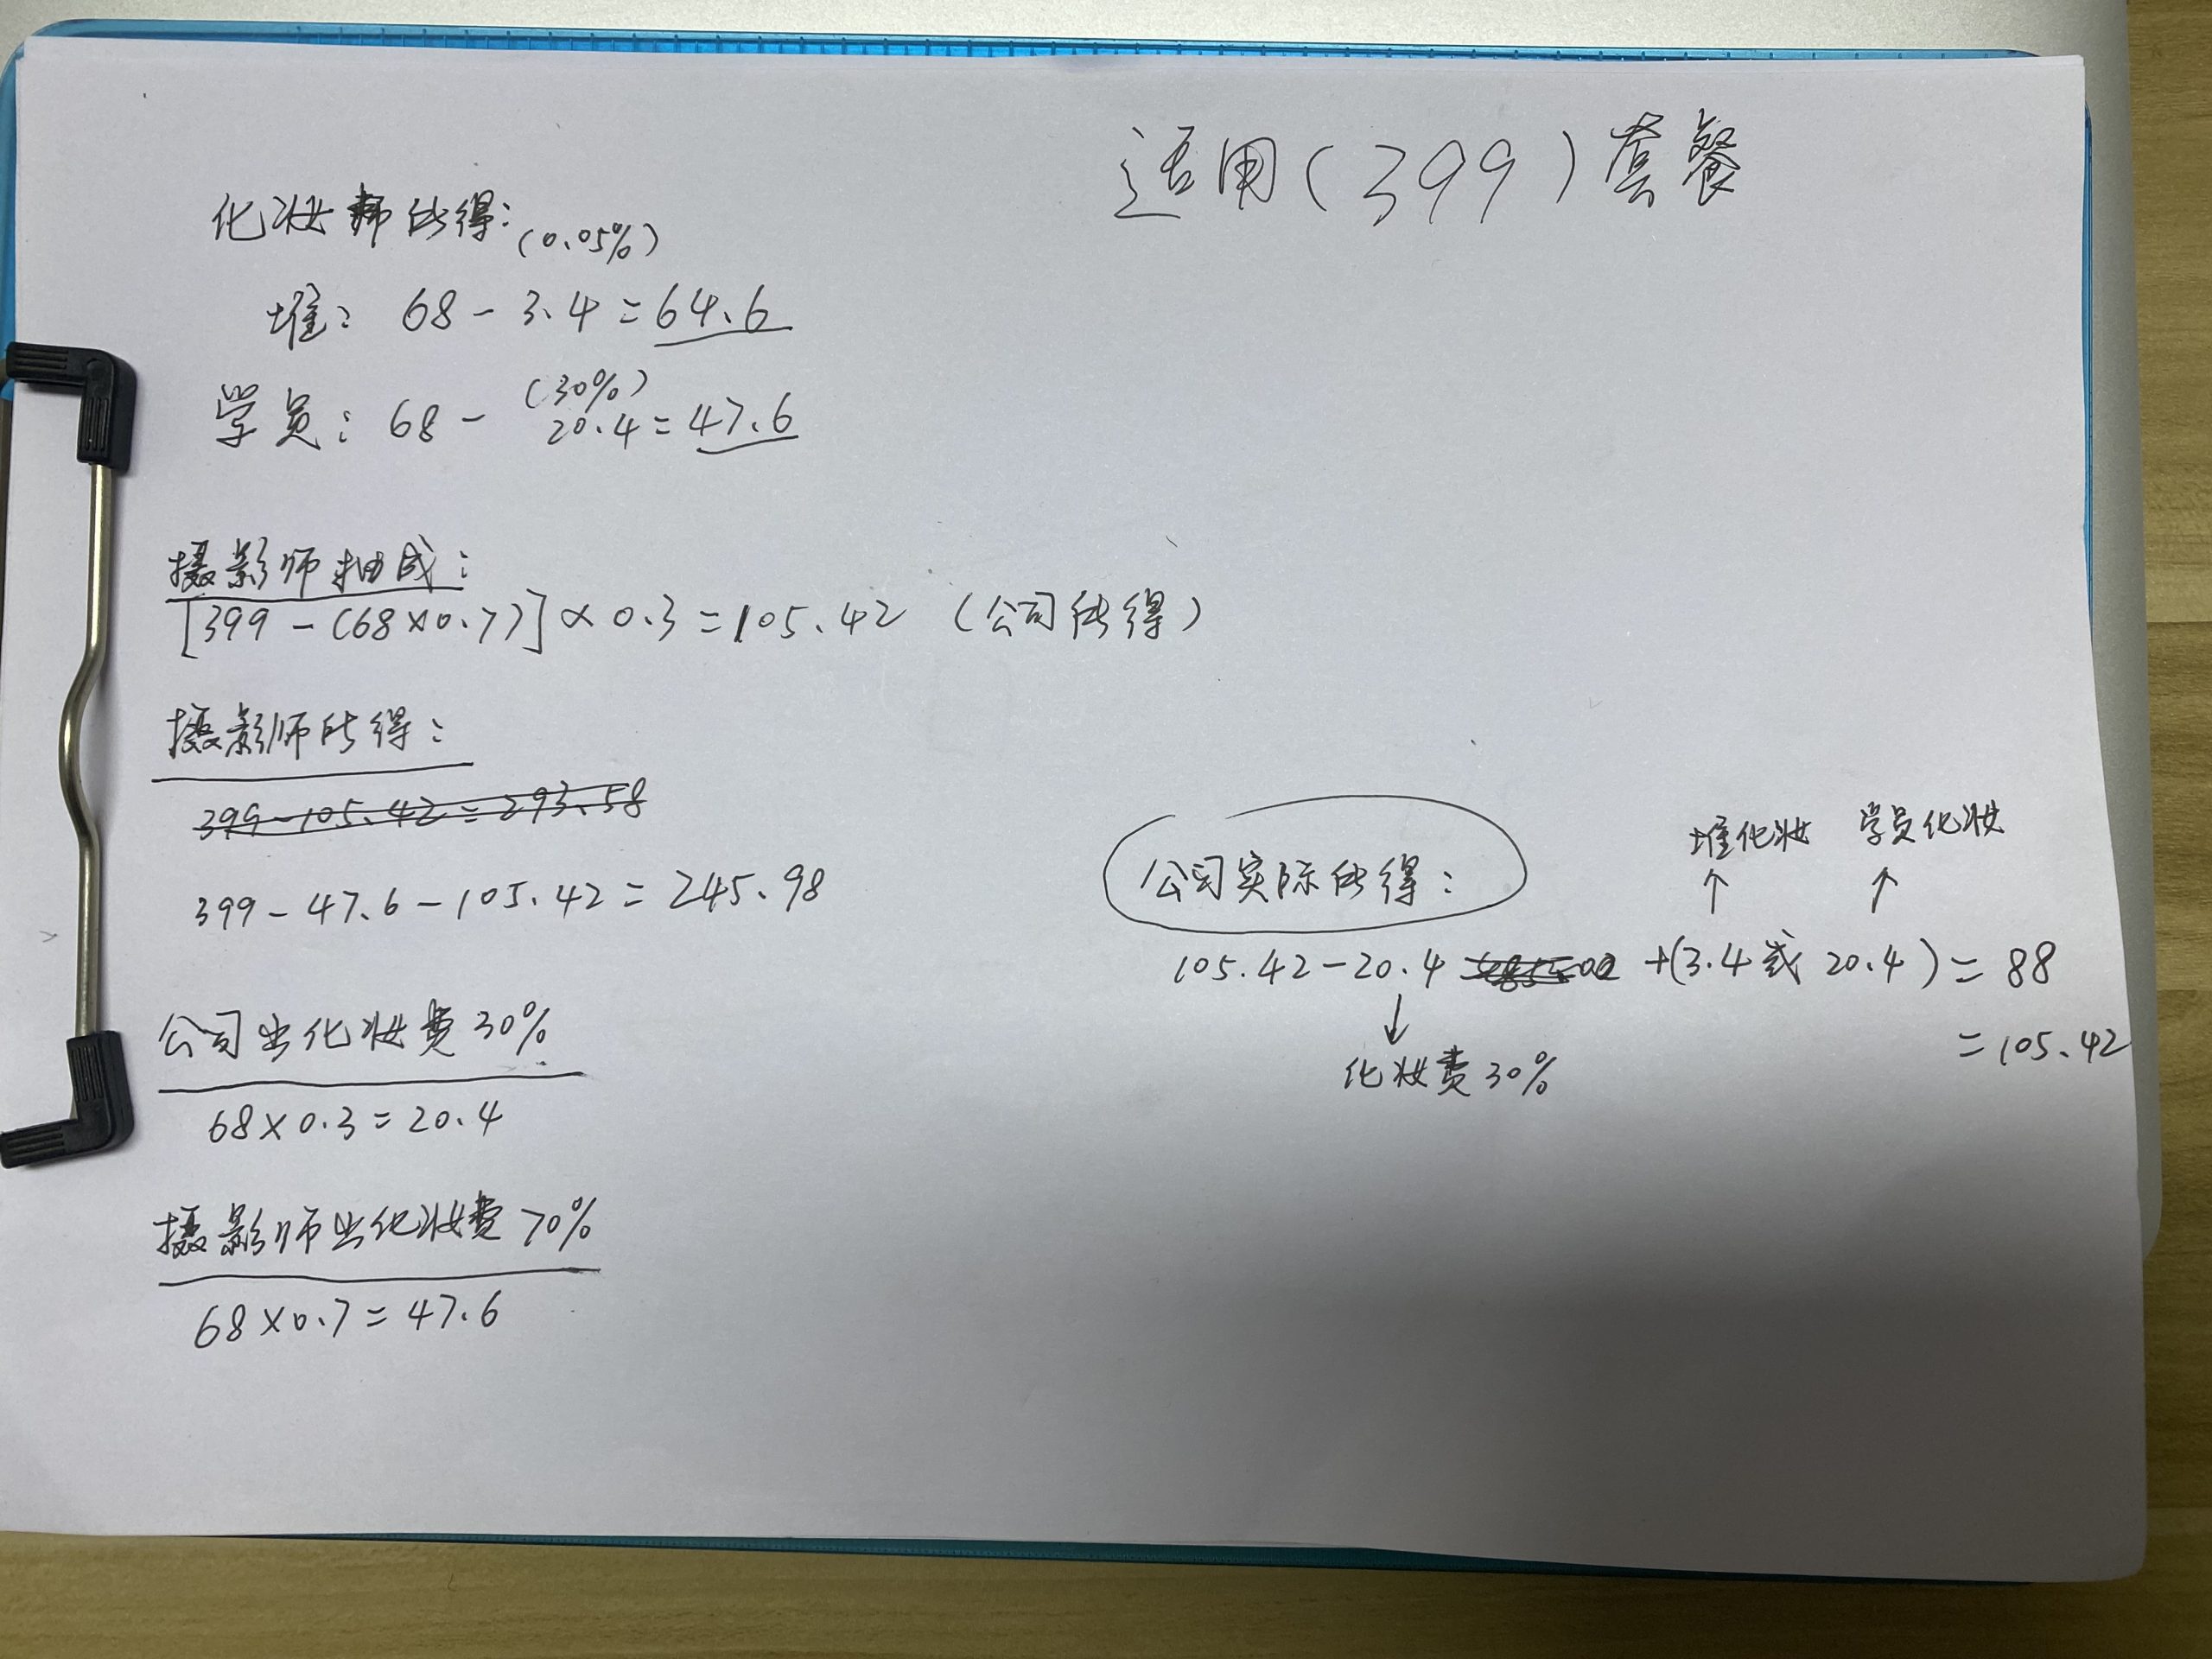 适用(399)套餐
化妆师所得:(0.05%)
堆: 68-3.4=64.6
学员: 68-20.4=47.6
(30%)
摄影师抽成:
[399-(68×0.7)]×0.3=105.42 (公司所得)
摄影师所得:
399-105.42=293.58
399-47.6-105.42=245.98
公司出化妆费30%
68×0.3=20.4
摄影师出化妆费70%
68×0.7=47.6
堆化妆 学员化妆
↑ ↑
公司实际所得:
105.42-20.4 +(3.4或20.4)=88
=105.42
↓
化妆费30%